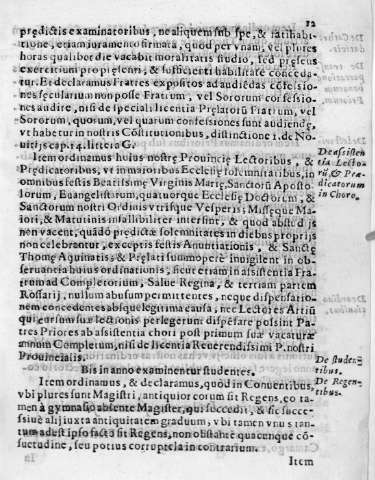 12
prędictis examinatoribus, ne aliquem sub spe, & ratihabi-
tione, etiam iuramento firmata, quod per vnam, vel plures
horas qualibet die vacabit moralitatis studio, sed pręsens
exercitium pro pręsenti, & sufficienti habilitate conceda-
tur. Et declaramus Fratres expositos ad audiēdas cōfessio-
nes sęcularium non posse Fratrum, vel Sororum cōfessio-
nes audire, nisi de speciali licentia Pręlatorū Fratrum, vel
Sororum, quorum, vel quarum confessiones sunt audiendę,
vt habetur in nostris Cōstitutionibus, distinctione 1. de No-
uitijs cap. 14. littera G.
Item ordinamus huius nostrę Prouincię Lectoribus, &
Prędicatoribus, vt in maioribus Ecclesię solemnitatibus, in
omnibus festis Beatissimę Virginis Marię, Sanctorū Aposto-
lorum, Euangelistarum, quatuorque Ecclesię Doctorum, &
Sanctorum nostri Ordinis vtrisque Vesperis, Missęque Ma-
iori, & Matutinis infallibiliter intersint, & quod ab studijs
non vacent, quādo prędictæ solemnitates in diebus proprijs
non celebrentur, exceptis festis Anuntiationis, & Sanctę
Thomę Aquinatis; & Pręlati summopere inuigilent in ob-
seruancia huius ordinationis, sicut etiam in assistentia Fra-
trum ad Completorium, Salue Regina, & tertiam partem
Rossarij, nullum abusum permittentes, neque dispensatio-
nem concedentes absque legitima causa, nec Lectores Artiū
qui cursum suæ lectionis perlegerunt dispēsare possint Pa-
tres Priores ab assistentia chori post primum suæ vacaturæ
annum Completum, nisi de licentia Reuerendissimi P. nostri
Prouincialis.
Bis in anno examinentur studentes.
Item ordinamus, & declaramus, quòd in Conuentibus,
vbi plures sunt Magistri, antiquior eorum sit Regens, eo ta-
men à gymnasio absente Magister, qui succedit, & sic succe-
ssiuè alij juxta antiquitatem graduum, vbi tamen vnus tan-
tum adest ipso facto sit Regens, non obstante quacunque cō-
suetudine, seu potius corruptela in contrarium.
Item
De assisten-
tia Lecto-
rū, & Præ-
dicatorum
in Choro.
De studen-
tibus.
De Regen-
tibus.